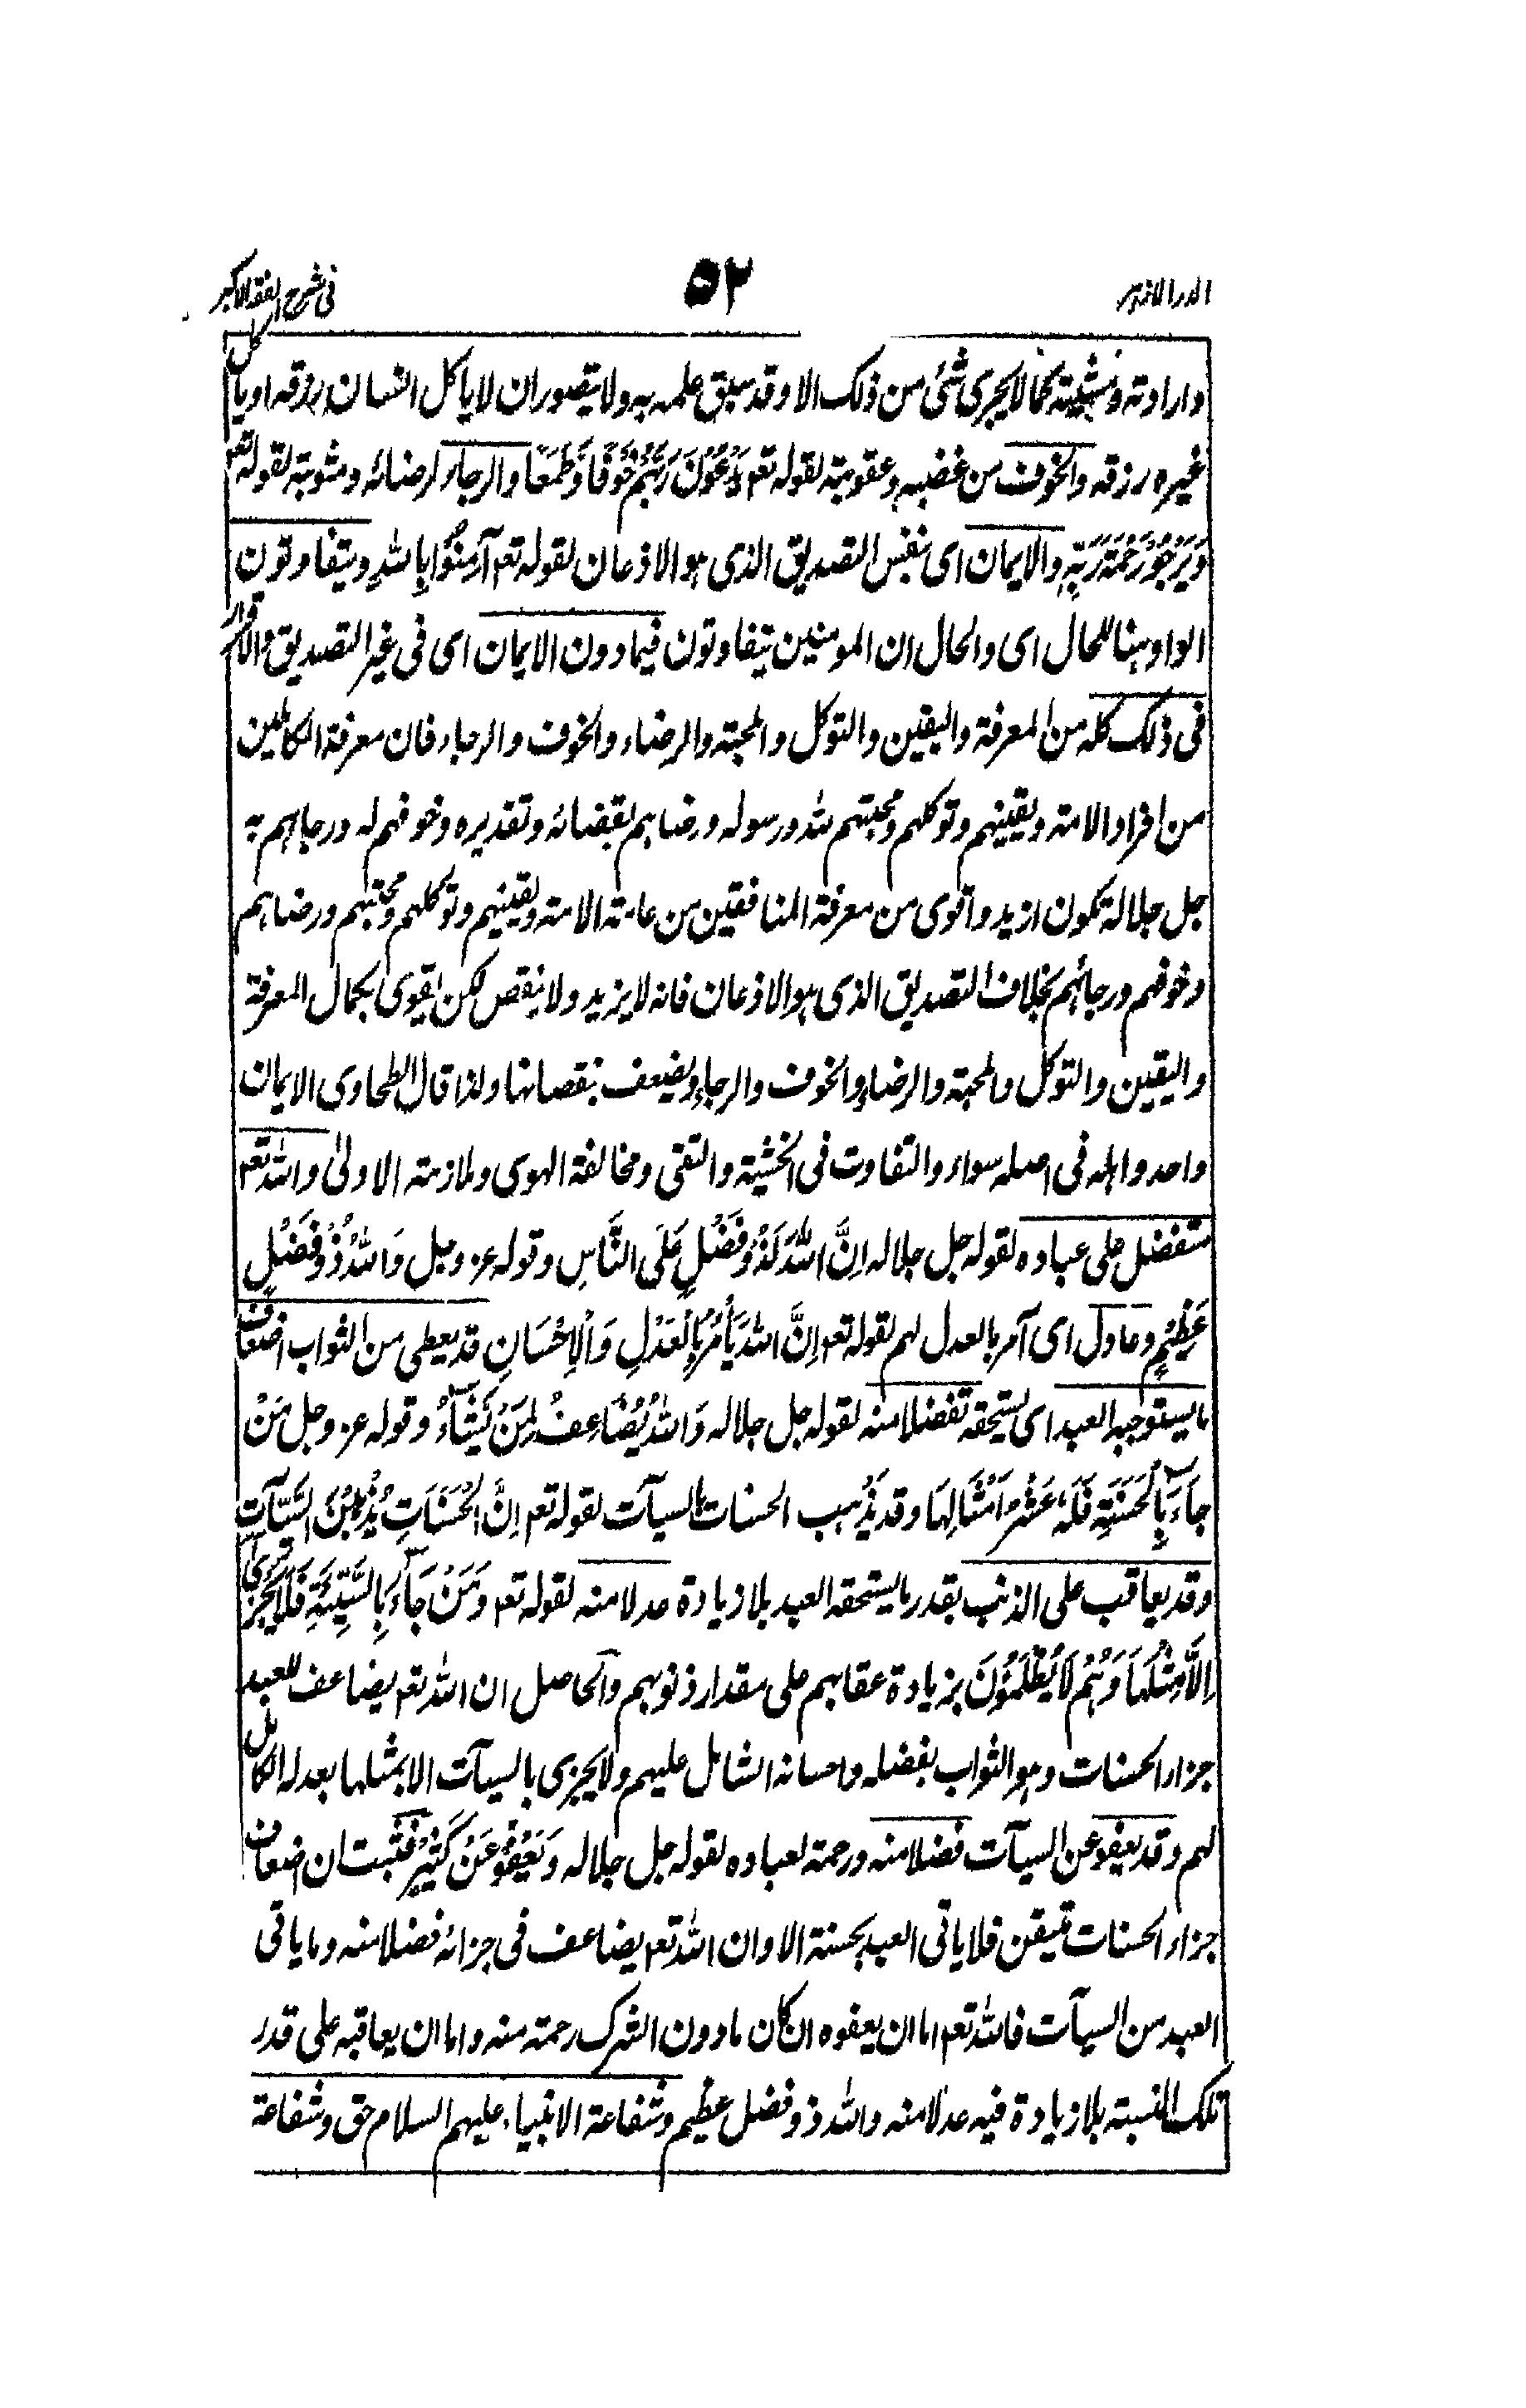 الدر الازهر ٥٢ فی شرح الفقه الاکبر
وارادته ومشیته کما لا یجری شئ من ذلک الا وقد سبق علمه به ولا یتصور ان لا یاکل انسان رزقه او یاکل
غیره رزقه والخوف من غضبه وعقوبته لقوله تعـ یَدْعُوْنَ رَبَّهُمْ خَوْفًا وَّطَمَعًا والرجاء لرضائه ومثوبته لقوله تعـ
وَیَرْجُوْ رَحْمَةَ رَبِّهٖ والایمان ای بنفس التصدیق الذی هو الاذعان لقوله تعـ آمِنُوْا بِاللهِ ویتفاوتون
الواو هنا للحال ای والحال ان المومنین یتفاوتون فیما دون الایمان ای فی غیر التصدیق والاقرار
فی ذلک کله من المعرفة والیقین والتوکل والمحبة والرضاء والخوف والرجاء فان معرفة الکاملین
من افراد الامة ویقینهم وتوکلهم ومحبتهم لله ورسوله ورضاهم بقضائه وتقدیره وخوفهم له ورجاهم به
جل جلاله تکون ازید واقوی من معرفة المنافقین من عامة الامة ویقینهم وتوکلهم ومحبتهم ورضاهم
وخوفهم ورجائهم بخلاف التصدیق الذی هو الاذعان فانه لا یزید ولا ینقص لکن یقوی بکمال المعرفة
والیقین والتوکل والمحبة والرضاء والخوف والرجاء ویضعف بنقصانها ولذا قال الطحاوی الایمان
واحد واهله فی اصله سواء والتفاوت فی الخشیة والتقی ومخالفة الهوی وملازمة الاولیٰ والله تعـ
متفضل علی عباده لقوله جل جلاله اِنَّ اللهَ لَذُوْ فَضْلٍ عَلَی النَّاسِ وقوله عز وجل وَاللهُ ذُوْ فَضْلٍ
عَظِیْمٍ وعادل ای آمر بالعدل لهم لقوله تعـ اِنَّ اللهَ یَأْمُرُ بِالْعَدْلِ وَالْاِحْسَانِ قد یعطی من الثواب اضعاف
ما یستوجبه العبد ای یستحقه تفضلا منه لقوله جل جلاله وَاللهُ یُضَاعِفُ لِمَنْ یَّشَآءُ وقوله عز وجل مَنْ
جَآءَ بِالْحَسَنَةِ فَلَهٗ عَشْرُ اَمْثَالِهَا وقد یذهب الحسنات السیآت لقوله تعـ اِنَّ الْحَسَنَاتِ یُذْهِبْنَ السَّیِّآتِ
وقد یعاقب علی الذنب بقدر ما یستحقه العبد بلا زیادة عدلا منه لقوله تعـ وَمَنْ جَآءَ بِالسَّیِّئَةِ فَلَا یُجْزٰی
اِلَّا مِثْلَهَا وَهُمْ لَا یُظْلَمُوْنَ بزیادة عقابهم علی مقدار ذنوبهم والحاصل ان الله تعـ یضاعف للعبد
جزاء الحسنات وهو الثواب بفضله واحسانه الشامل علیهم ولا یجزی بالسیآت الا بمثلها بعدله الکامل
لهم وقد یعفو عن السیآت فضلا منه ورحمة لعباده لقوله جل جلاله وَیَعْفُوْ عَنْ کَثِیْرٍ فثبت ان اضعاف
جزاء الحسنات متیقن فلا یاتی العبد بحسنة الا وان الله تعـ یضاعف فی جزائه فضلا منه وما یاتی
العبد من السیآت فالله تعـ اما ان یعفوه ان کان ما دون الشرک رحمة منه واما ان یعاقبه علی قدر
تلک النسبة بلا زیادة فیه عدلا منه والله ذو فضل عظیم وشفاعة الانبیاء علیهم السلام حق وشفاعة